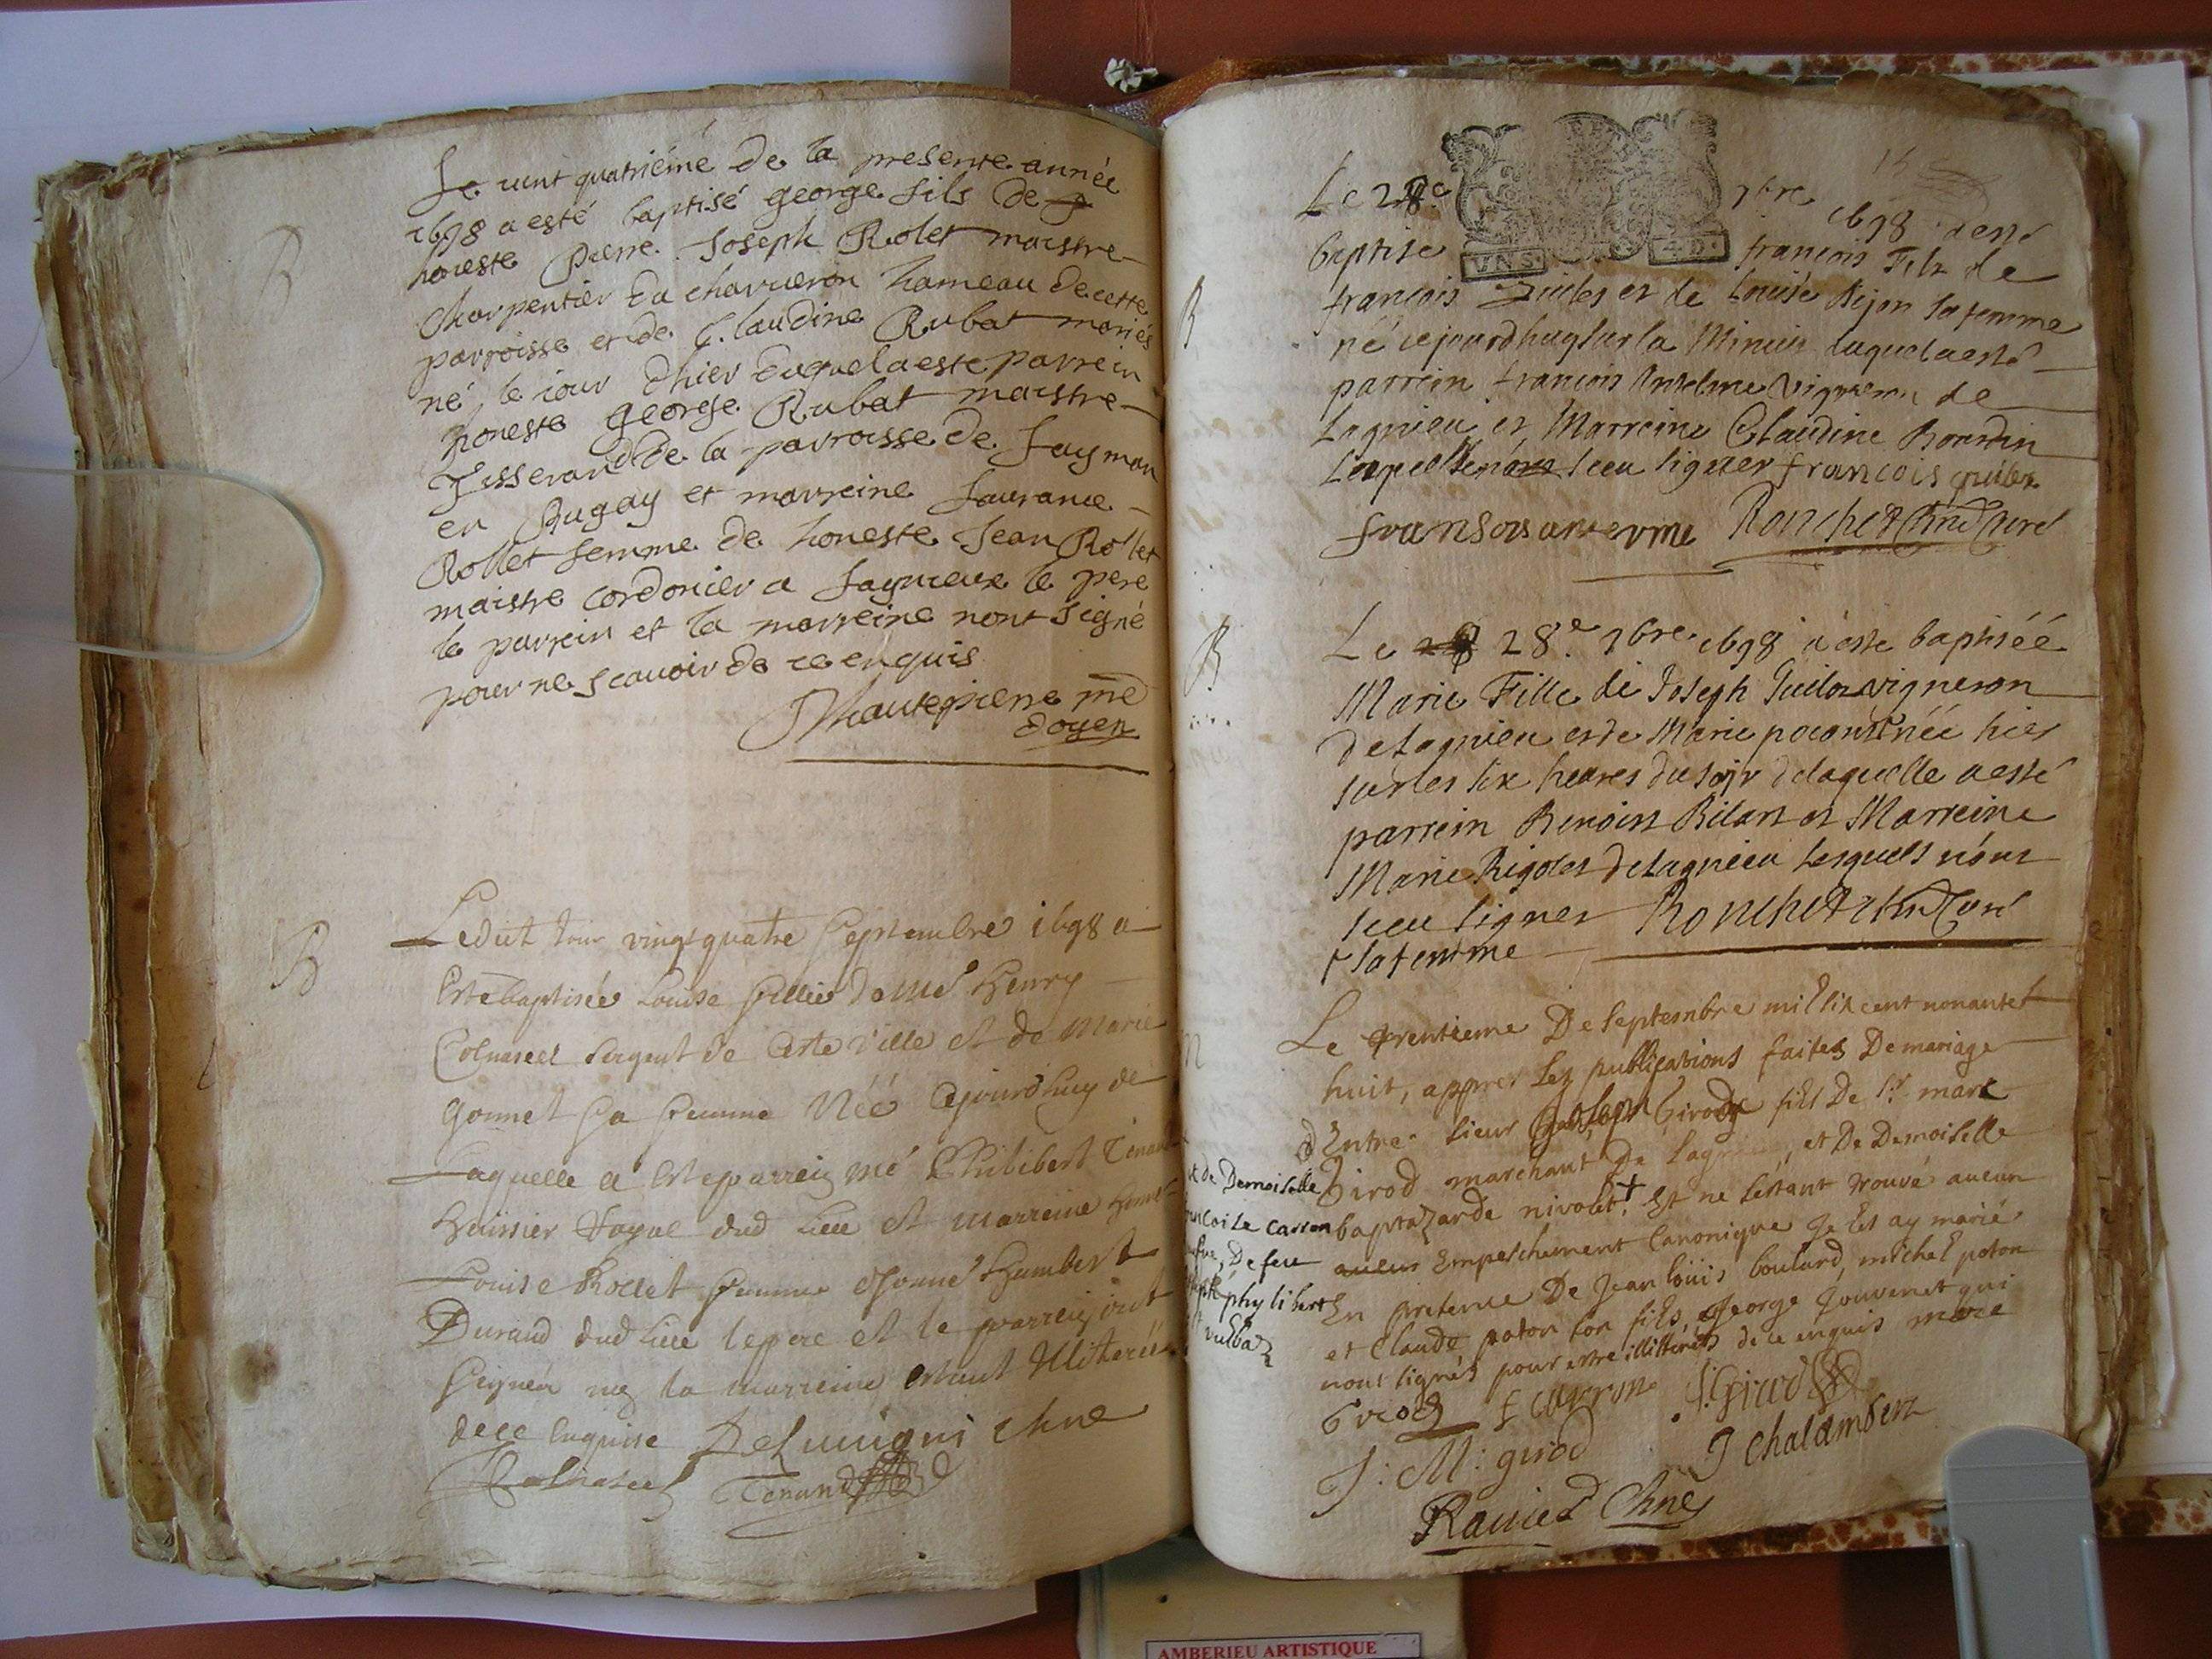 Le vint quatriéme de la presente année
1698 a esté baptisé george fils de
honeste Pierre Joseph Rolet maistre
charpentier du charveron hameau de cette
parroisse et de Claudine Rubat mariés
né le iour d'hier duquel a este parrein
honeste george Rubat maistre
Tisserand de la parroisse de
en Bugay et marreine Laurance
Rollet femme de honeste Jean Rollet
maistre cordonier a Lagnieux le pere
le parrein et la marreine nont signé
pour ne scauoir de ce enquis
Dhautepierre
doyen
B
B
Ledit Jour vingt quatre Septembre 1698 a
Esté baptisée Louise fillie de Me Henry
Colnasect sergent de Cette ville et de Marie
gonnet sa femme Néé Cejourdhuy de
Laquelle a Esté parrein me Philibert Tenand
Huissier Royal dud Lieu et marreine
Louise Rollet femme
Durand dud Lieu le pere et le parrein ont
Signéz nez la marreine estant Illiteréé
de ce Enquise Delunigni chne
Tenand
Le 28e 7bre 1698 a esté
UNS 4 D
baptise francois Fils de
francois et de Louise Bijon sa femme
né cejourdhuy sur la Minuit duquel a esté
parrein francois Antelme vigneron de
Lagnieu et Marreine Claudine Bourdin
sceu signer francois
fransois anterme Ronchet Curé
B
B
Le 28e 7bre 1698 a este baptiséé
Marie Fille de Joseph vigneron
de Lagnieu et de Marie née hier
sur les six heures du soir de laquelle a esté
parrein Benoist Bilart et Marreine
Marie Rigolet de Lagnieu Lesquels n'ont
sceu signer Ronchet Curé
+ sa femme
Le trentieme De Septembre mil six cent nonante
huit, apprez Lez publications faites De mariage
d'Entre sieur Joseph Girod fils De Sr marc
Girod marchant De Lagnieu, et De Demoiselle
baptazarde nivolet, + Et ne sestant trouvé aucun
Empeschement Canonique Je Les ay mariés
En presence De Jean loüis boulard, michel poton
et Claude poton son fils, George Jouvenet qui
nont signés pour estre illitterés de ce enquis marc
Girod F Carron Girod
J: M: girod J Chalambert
Ravier Chne
et de Demoiselle
francoise Carron
De feu
phylibert
AMBERIEU ARTISTIQUE